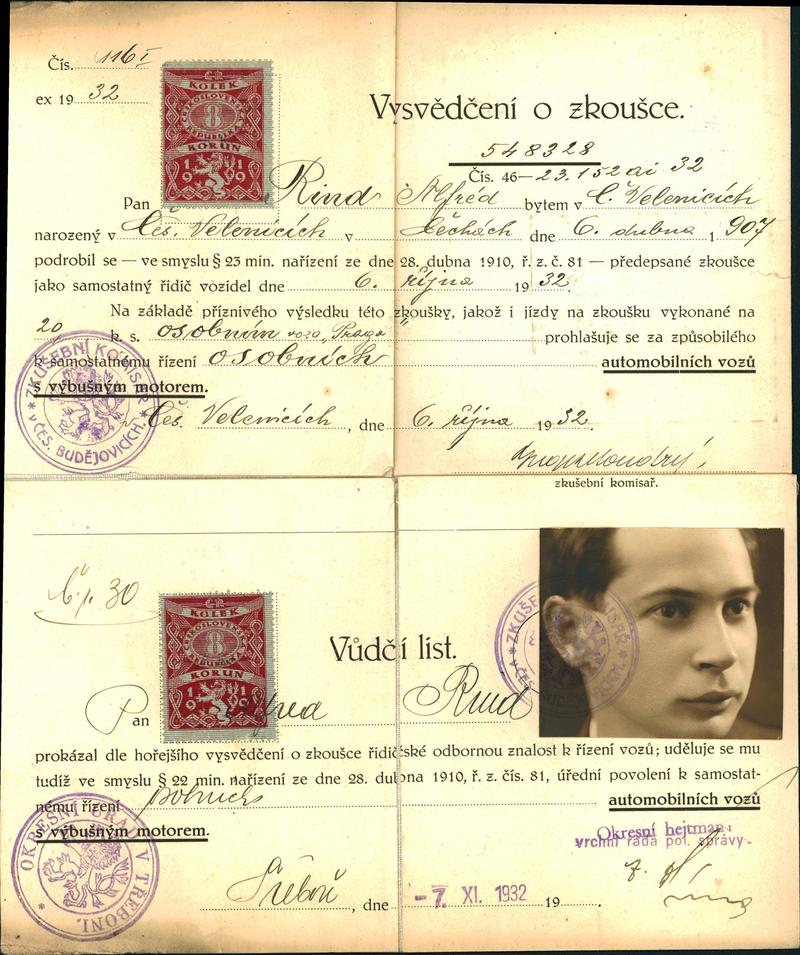 Čís. 116 I
ex 1932
KOLEK
ČESKOSLOVENSKÁ
8
REPUBLIKA
KORUN
1919
Vysvědčení o zkoušce.
548328
Čís. 46—23.152 ai 32
Pan Rind Alfréd bytem v Č. Velenicích
narozený v Čes. Velenicích v Čechách dne 6. dubna 1907
podrobil se — ve smyslu § 23 min. nařízení ze dne 28. dubna 1910, ř. z. č. 81 — předepsané zkoušce
jako samostatný řidič vozidel dne 6. října 1932.
Na základě příznivého výsledku této zkoušky, jakož i jízdy na zkoušku vykonané na
20 k. s. osobním voze „Praga" prohlašuje se za způsobilého
k samostatnému řízení osobních automobilních vozů
s výbušným motorem.
ZKUŠEBNÍ KOMISAŘ
V ČES. BUDĚJOVICÍCH.
Čes. Velenicích, dne 6. října 1932.
zkušební komisař.
Č. j. 30
KOLEK
ČESKOSLOVENSKÁ
8
REPUBLIKA
KORUN
1919
Vůdčí list.
ZKUŠEBNÍ KOMISAŘ
V ČES. BUDĚJOVICÍCH
Pan Alfred Rind
prokázal dle hořejšího vysvědčení o zkoušce řidičské odbornou znalost k řízení vozů; uděluje se mu
tudíž ve smyslu § 22 min. nařízení ze dne 28. dubna 1910, ř. z. čís. 81, úřední povolení k samostat-
nému řízení automobilních vozů
s výbušným motorem.
OKRESNÍ ÚŘAD V TŘEBONI.
Okresní hejtman:
vrchní rada pol. správy.
Třeboň, dne -7. XI. 1932 19